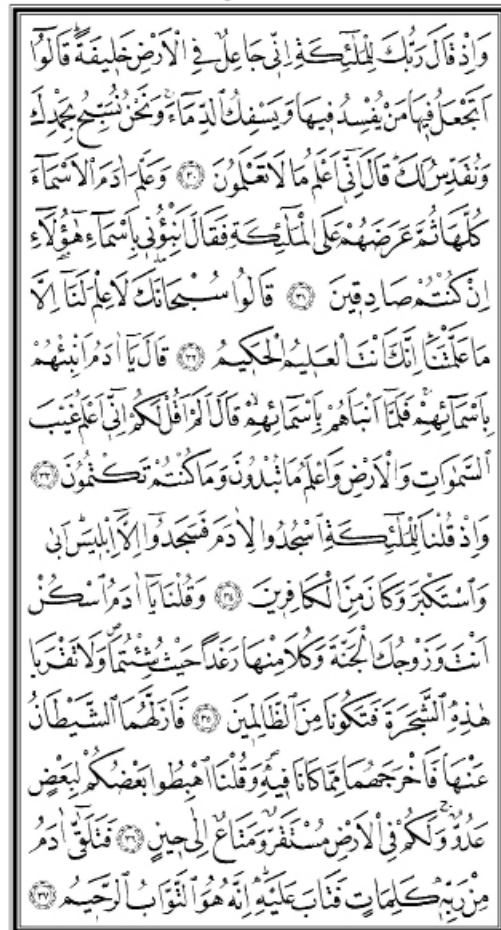 وَاِذْ قَالَ رَبُّكَ لِلْمَلٰٓئِكَةِ اِنّ۪ي جَاعِلٌ فِي الْاَرْضِ خَل۪يفَةًۜ قَالُٓوا
اَتَجْعَلُ ف۪يهَا مَنْ يُفْسِدُ ف۪يهَا وَيَسْفِكُ الدِّمَٓاءَۚ وَنَحْنُ نُسَبِّحُ بِحَمْدِكَ
وَنُقَدِّسُ لَكَۜ قَالَ اِنّ۪ٓي اَعْلَمُ مَا لَا تَعْلَمُونَ ﴿٣٠﴾ وَعَلَّمَ اٰدَمَ الْاَسْمَٓاءَ
كُلَّهَا ثُمَّ عَرَضَهُمْ عَلَى الْمَلٰٓئِكَةِ فَقَالَ اَنْبِؤُ۫ن۪ي بِاَسْمَٓاءِ هٰٓؤُ۬لَٓاءِ
اِنْ كُنْتُمْ صَادِق۪ينَ ﴿٣١﴾ قَالُوا سُبْحَانَكَ لَا عِلْمَ لَنَٓا اِلَّا
مَا عَلَّمْتَنَاۜ اِنَّكَ اَنْتَ الْعَل۪يمُ الْحَك۪يمُ ﴿٣٢﴾ قَالَ يَٓا اٰدَمُ اَنْبِئْهُمْ
بِاَسْمَٓائِهِمْۚ فَلَمَّٓا اَنْبَاَهُمْ بِاَسْمَٓائِهِمْۙ قَالَ اَلَمْ اَقُلْ لَكُمْ اِنّ۪ٓي اَعْلَمُ غَيْبَ
السَّمٰوَاتِ وَالْاَرْضِ وَاَعْلَمُ مَا تُبْدُونَ وَمَا كُنْتُمْ تَكْتُمُونَ ﴿٣٣﴾
وَاِذْ قُلْنَا لِلْمَلٰٓئِكَةِ اسْجُدُوا لِاٰدَمَ فَسَجَدُٓوا اِلَّٓا اِبْل۪يسَۜ اَبٰى
وَاسْتَكْبَرَ وَكَانَ مِنَ الْكَافِر۪ينَ ﴿٣٤﴾ وَقُلْنَا يَٓا اٰدَمُ اسْكُنْ
اَنْتَ وَزَوْجُكَ الْجَنَّةَ وَكُلَا مِنْهَا رَغَدًا حَيْثُ شِئْتُمَاۖ وَلَا تَقْرَبَا
هٰذِهِ الشَّجَرَةَ فَتَكُونَا مِنَ الظَّالِم۪ينَ ﴿٣٥﴾ فَاَزَلَّهُمَا الشَّيْطَانُ
عَنْهَا فَاَخْرَجَهُمَا مِمَّا كَانَا ف۪يهِۖ وَقُلْنَا اهْبِطُوا بَعْضُكُمْ لِبَعْضٍ
عَدُوٌّۚ وَلَكُمْ فِي الْاَرْضِ مُسْتَقَرٌّ وَمَتَاعٌ اِلٰى ح۪ينٍ ﴿٣٦﴾ فَتَلَقّٰٓى اٰدَمُ
مِنْ رَبِّه۪ كَلِمَاتٍ فَتَابَ عَلَيْهِۜ اِنَّهُ هُوَ التَّوَّابُ الرَّح۪يمُ ﴿٣٧﴾